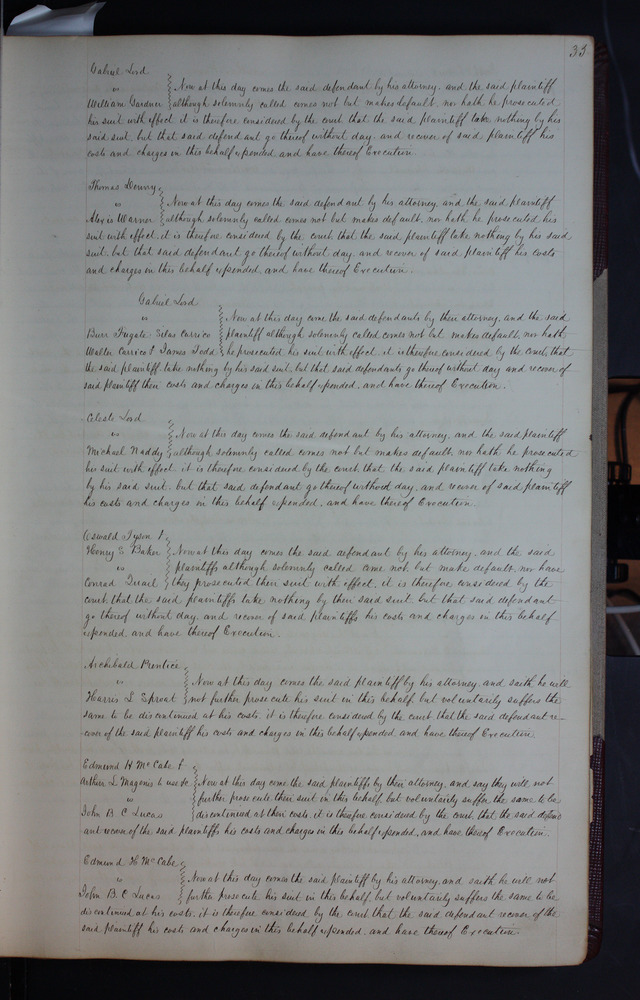 33
Gabriel Lord
vs } Now at this day comes the said defendant by his attorney, and the said plaintiff
William Gardner } although solemnly called comes not but makes default, nor hath he prosecuted
his suit with effect it is therefore considered by the court that the said plaintiff take nothing by his
said suit, but that said defendant go thereof without day and recover of said plaintiff his
costs and charges in this behalf expended and have thereof Execution.
Thomas
vs } Now at this day comes the said defendant by his attorney, and the said plaintiff
Alexis Warner } although solemnly called comes not but makes default, nor hath he prosecuted his
suit with effect, it is therefore considered by the court that the said plaintiff take nothing by his said
suit, but that said defendant go thereof without day, and recover of said plaintiff his costs
and charges in this behalf expended, and have thereof Execution.
Gabriel Lord
vs } Now at this day come the said defendants by their attorney, and the said
Burr Fugate Silas Carrico } plaintiff although solemnly called comes not but makes default, nor hath
Walter Carrico & James Todd } he prosecuted his suit with effect, it is therefore considered by the court, that
the said plaintiff take nothing by his said suit, but that said defendants go thereof without day and recover of
said plaintiff their costs and charges in this behalf expended, and have thereof Execution.
Celeste Lord
vs } Now at this day comes the said defendant by his attorney, and the said plaintiff
Michael Waddy } although solemnly called comes not but makes default, nor hath he prosecuted
her suit with effect it is therefore considered by the court, that the said plaintiff take nothing
by his said suit, but that said defendant go thereof without day, and recover of said plaintiff
his costs and charges in this behalf expended, and have thereof Execution.
Oswald Tyson &
Henry S Baker } Now at this day comes the said defendant by his attorney, and the said
vs } plaintiffs although solemnly called came not but make default, nor have
Conrad Quail } they prosecuted their suit with effect, it is therefore considered by the
court that the said plaintiffs take nothing by their said suit but that said defendant
go thereof without day, and recover of said plaintiffs his costs and charges in this behalf
expended, and have thereof Execution.
Archibald Prentice
vs } Now at this day comes the said plaintiff by his attorney, and saith he will
Harris L Sproat } not further prosecute his suit in this behalf but voluntarily suffers the
same to be discontinued at his costs, it is therefore considered by the court that the said defendant re-
cover of the said plaintiff his costs and charges in this behalf expended, and have thereof Execution.
Edmund H McCabe &
Arthur L Magenis to use &c } Now at this day come the said plaintiffs by their attorney, and say they will not
vs } further prosecute their suit in this behalf but voluntarily suffer the same to be
John B C Lucas } discontinued at their costs, it is therefore considered by the court, that, the said defend-
ant recover of the said plaintiffs his costs and charges in this behalf expended, and have thereof Execution.
Edmund H McCabe
vs } Now at this day comes the said plaintiff by his attorney, and saith he will not
John B. C Lucas } further prosecute his suit in this behalf, but voluntarily suffers the same to be
discontinued at his costs, it is therefore considered by the court that the said defendant recover of the
said plaintiff his costs and charges in this behalf expended, and have thereof Execution.